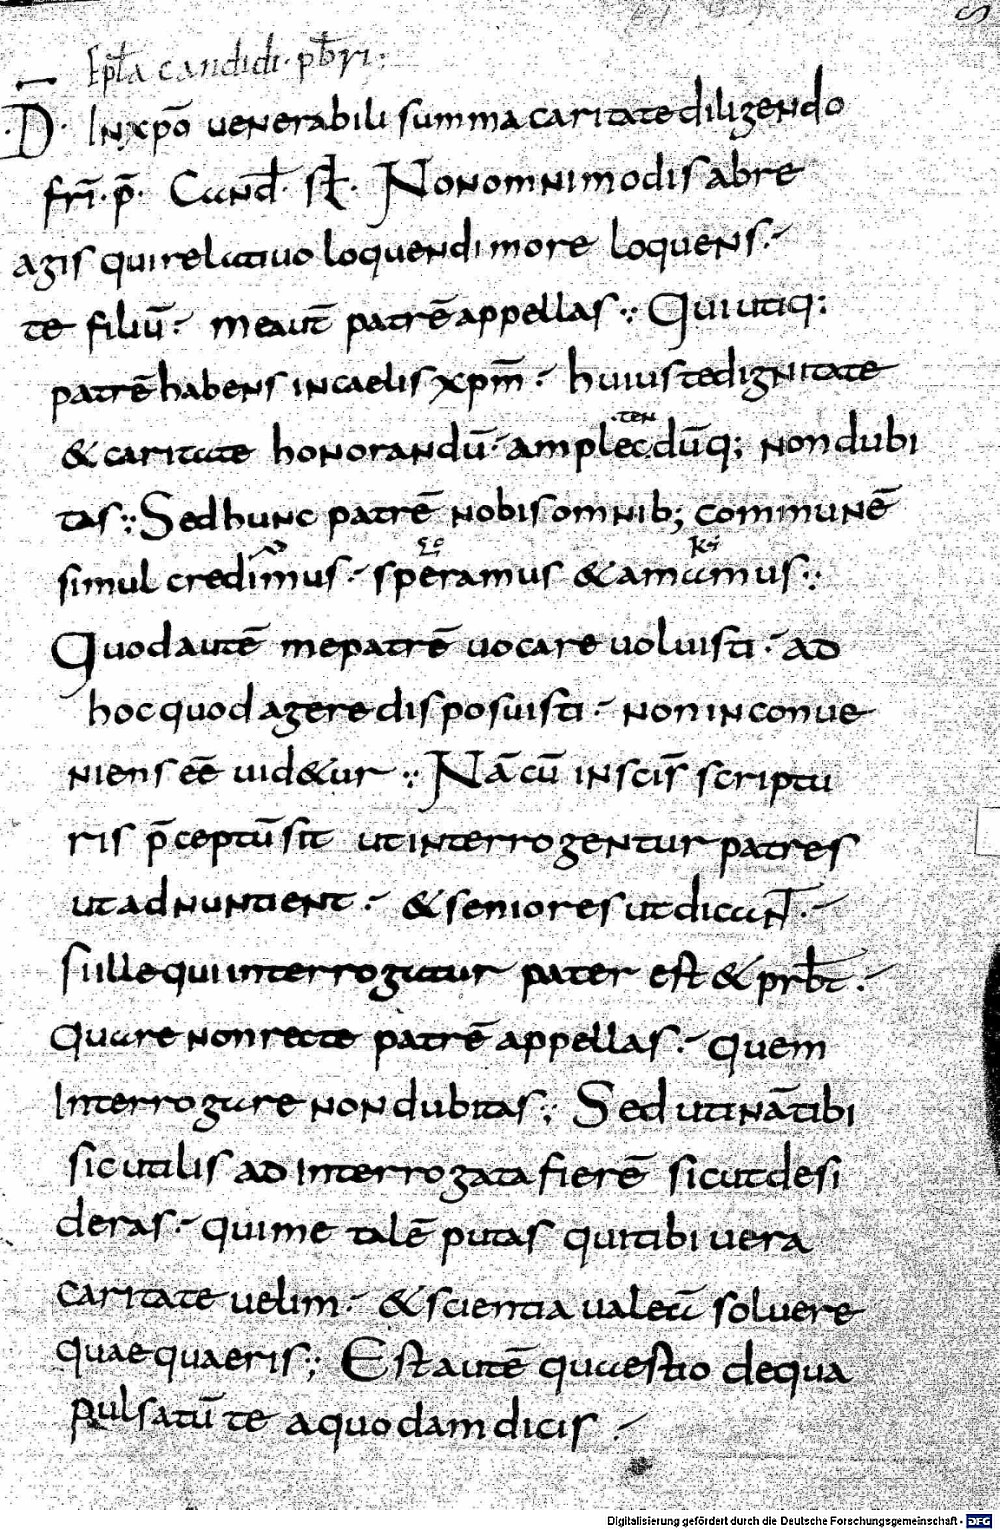 Epl̄a candidi · pb̄ri ·
·D̄· INxp̄o uenerabili summa caritate diligendo
fr̄i · p̄ · Cand̄ · sl̄t · Non omnimodis ab re
agis qui relatiuo loquendi more loquens ·
te filiū · me aut̄ patrē appellas : Qui utiq:
patrē habens in caelis xpm̄ · huius te dignitate
& caritate honorandū · amplec·ten·dūq; non dubi
tas : Sed hunc patrē nobis omnib; communē
simul credimus · speramus & amamus :
Quod autē me patrē uocare uoluisti · ad
hoc quod agere disposuisti · non inconue
niens eē uid&ur : Nā cū in scis̄ scriptu
ris p̄ceptū sit ut interrogentur patres
ut adnuntient · & seniores ut dicant ·
si ille qui interrogatur pater est & prb̄t ·
quare non recte patrē appellas · quem
Interrogare non dubitas : Sed utinā tibi
sic utilis ad interrogata fierē sicut desi
deras · qui me talē putas qui tibi uera
caritate uelim · & scientia ualeā soluere
quae quaeris : Est autē quaestio de qua
pulsatū te a quodam dicis ·
Digitalisierung gefördert durch die Deutsche Forschungsgemeinschaft - DFG